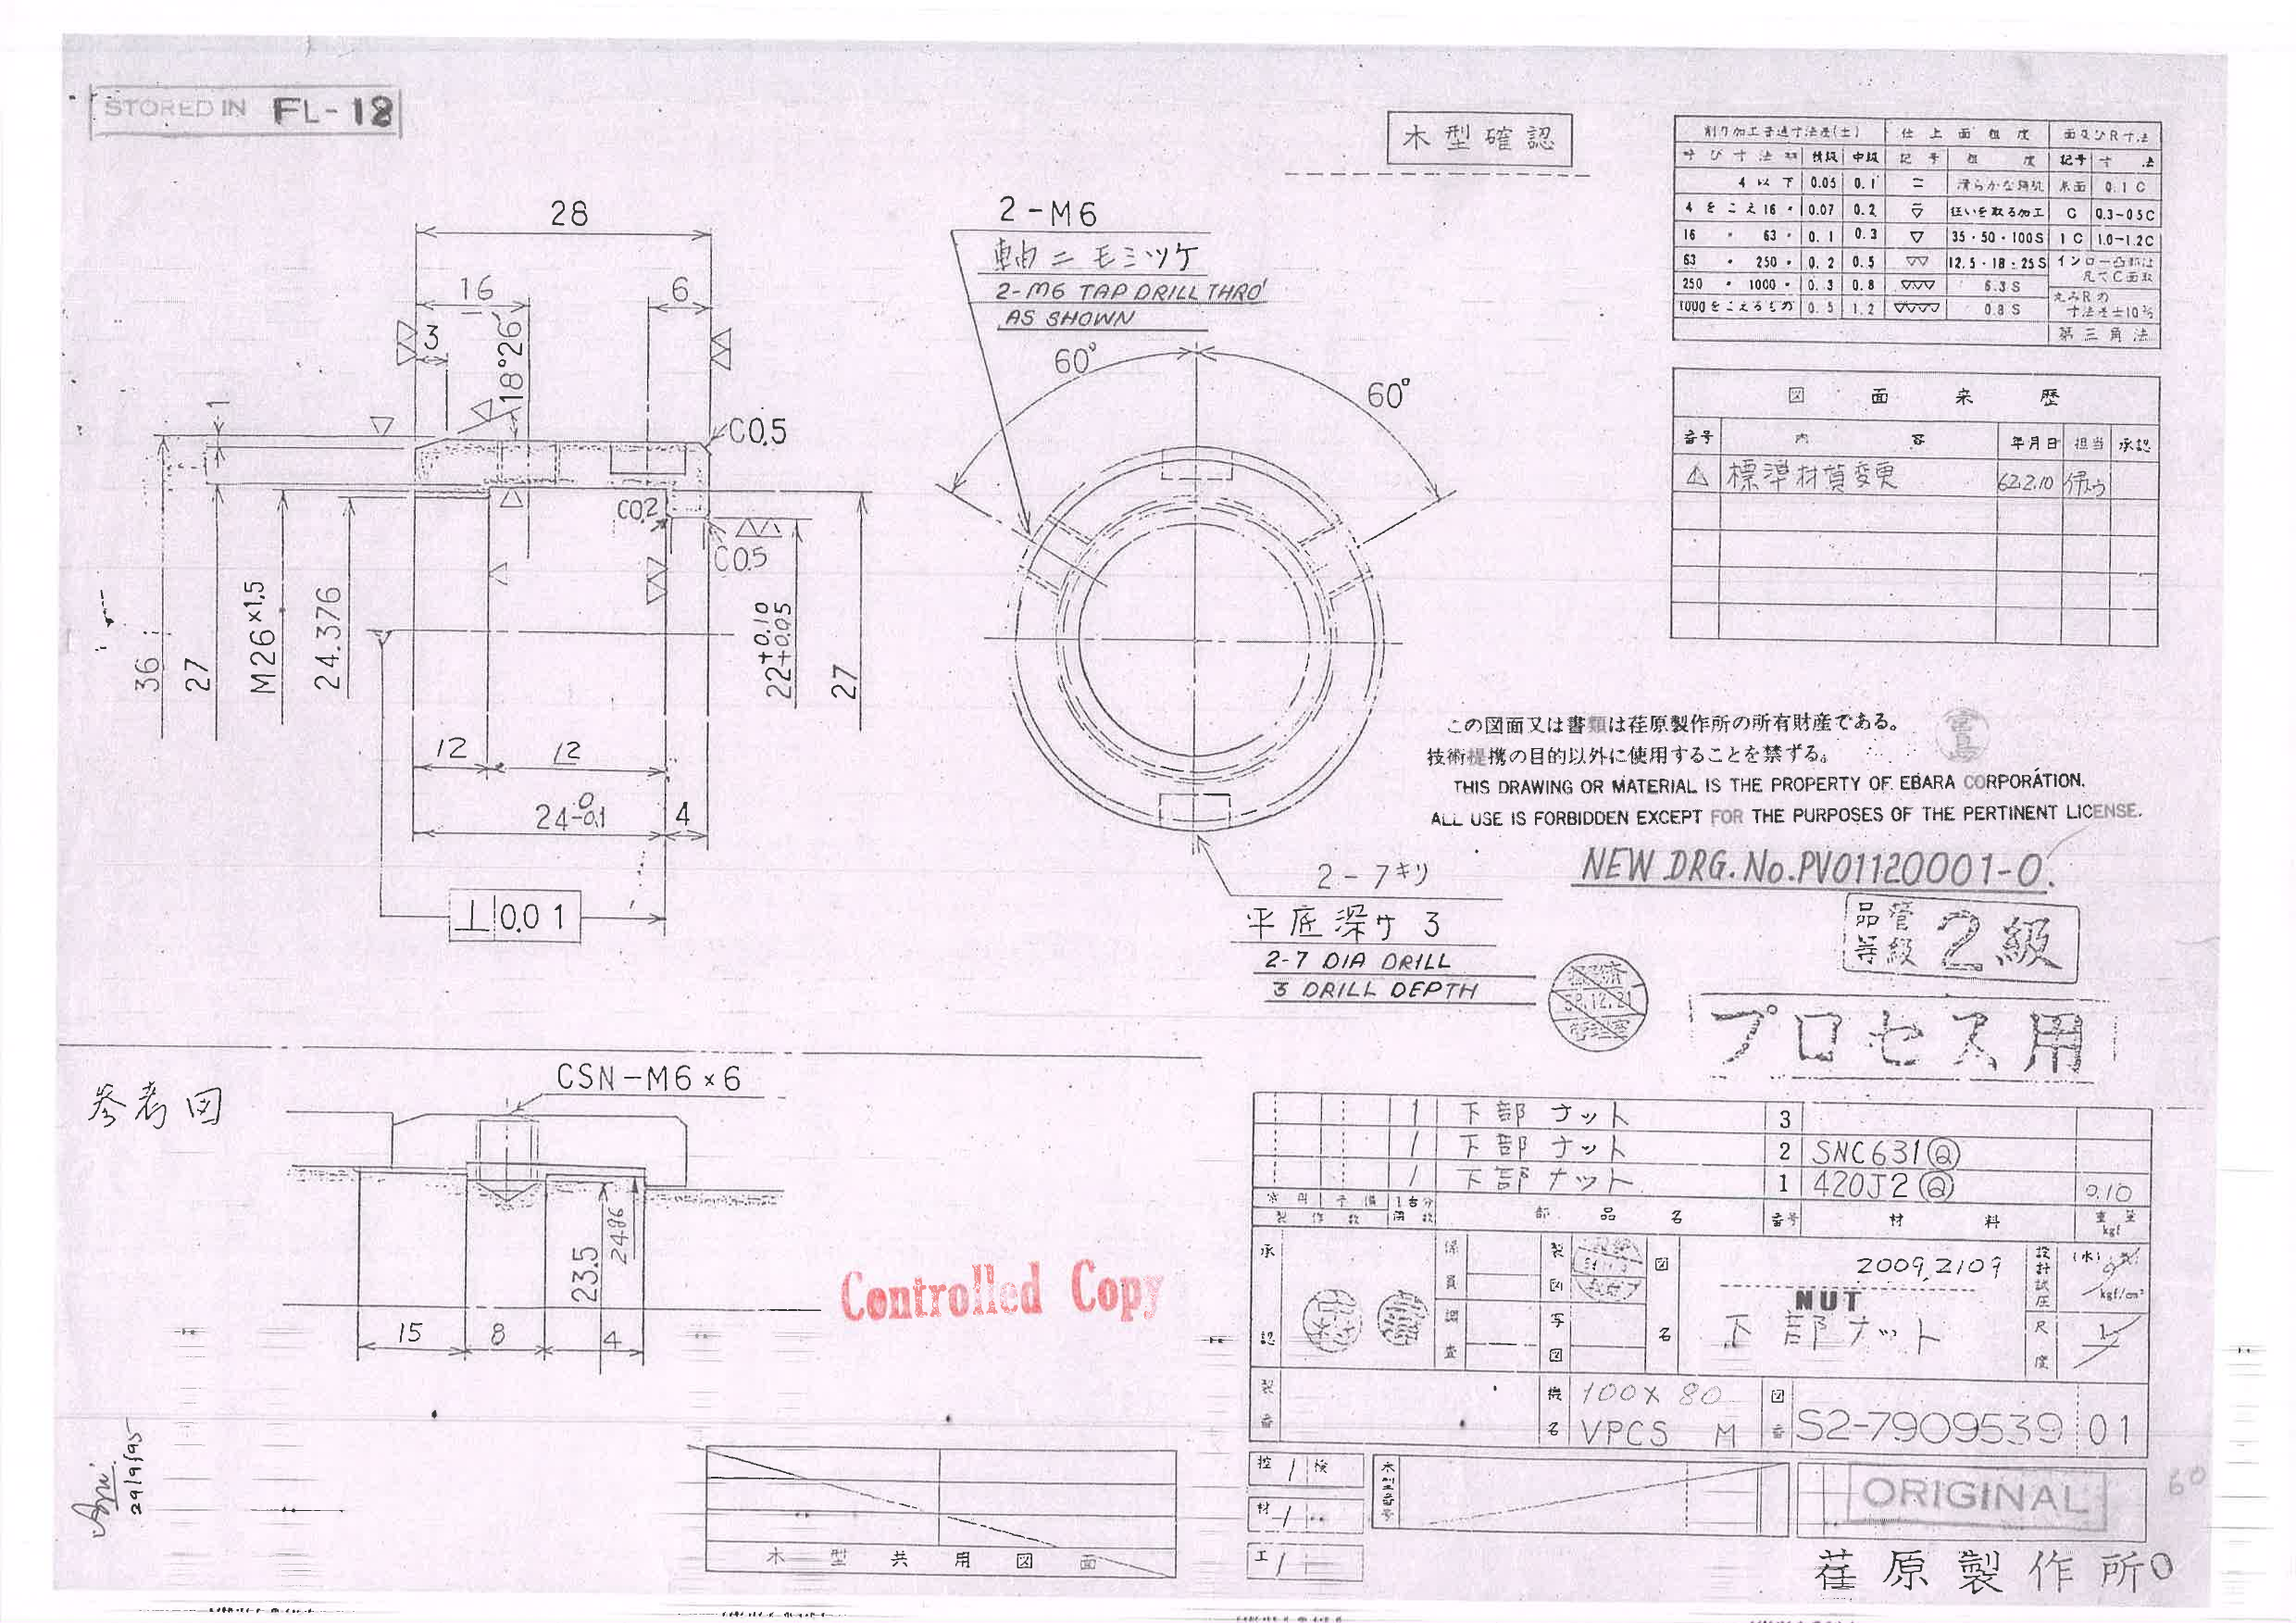 STORED IN FL-18
木型確認
削り加工普通寸法差(±) 仕上面粗度 面及びR寸法
呼び寸法 精級 中級 記号 粗度 記号 寸法
4以下 0.05 0.1 滑らかな鋳肌 糸面 0.1C
4をこえ16〃 0.07 0.2 ▽ 狂いを取る加工 C 0.3-0.5C
16 〃 63〃 0.1 0.3 ▽ 35・50・100S 1C 1.0-1.2C
63 〃 250〃 0.2 0.5 ▽▽ 12.5・18・25S インロー凸部は凡てC面取
250 〃 1000〃 0.3 0.8 ▽▽▽ 6.3S
1000をこえるもの 0.5 1.2 ▽▽▽▽ 0.8S
丸みRの寸法差±10%
第三角法
図面来歴
番号 内容 年月日 担当 承認
標準材質変更 62.2.10
28
16
6
3
18°26′
1
C0.5
C0.2
C0.5
36
27
M26×1.5
24.376
22+0.10+0.05
27
12
12
24 0 -0.1
4
⊥ 0.01
2-M6
軸ニモミツケ
2-M6 TAP DRILL THRO'
AS SHOWN
60°
60°
2-7キリ
平底深サ3
2-7 DIA DRILL
3 DRILL DEPTH
この図面又は書類は荏原製作所の所有財産である。
技術提携の目的以外に使用することを禁ずる。
THIS DRAWING OR MATERIAL IS THE PROPERTY OF EBARA CORPORATION.
ALL USE IS FORBIDDEN EXCEPT FOR THE PURPOSES OF THE PERTINENT LICENSE.
NEW DRG. No. PV01120001-0.
品管等級 2級
58.12.21
プロセス用
参考図
CSN-M6×6
23.5
24.86
15
8
4
Controlled Copy
1 下部ナット 3
1 下部ナット 2 SNC631Ⓠ
1 下部ナット 1 420J2Ⓠ 0.10
常用 予備 1台分
製作数 個数 部品名 番号 材料 重量 kgf
承認
係員
調査
製図
写図
図名
2009,2109
NUT
下部ナット
設計試圧 (水) kgf/cm²
尺度 1/1
製番
機名 100×80
VPCS M
図番 S2-7909539 01
控 検
材
工
木型番号
ORIGINAL
60
木型共用図面
29/9/95
荏原製作所 0